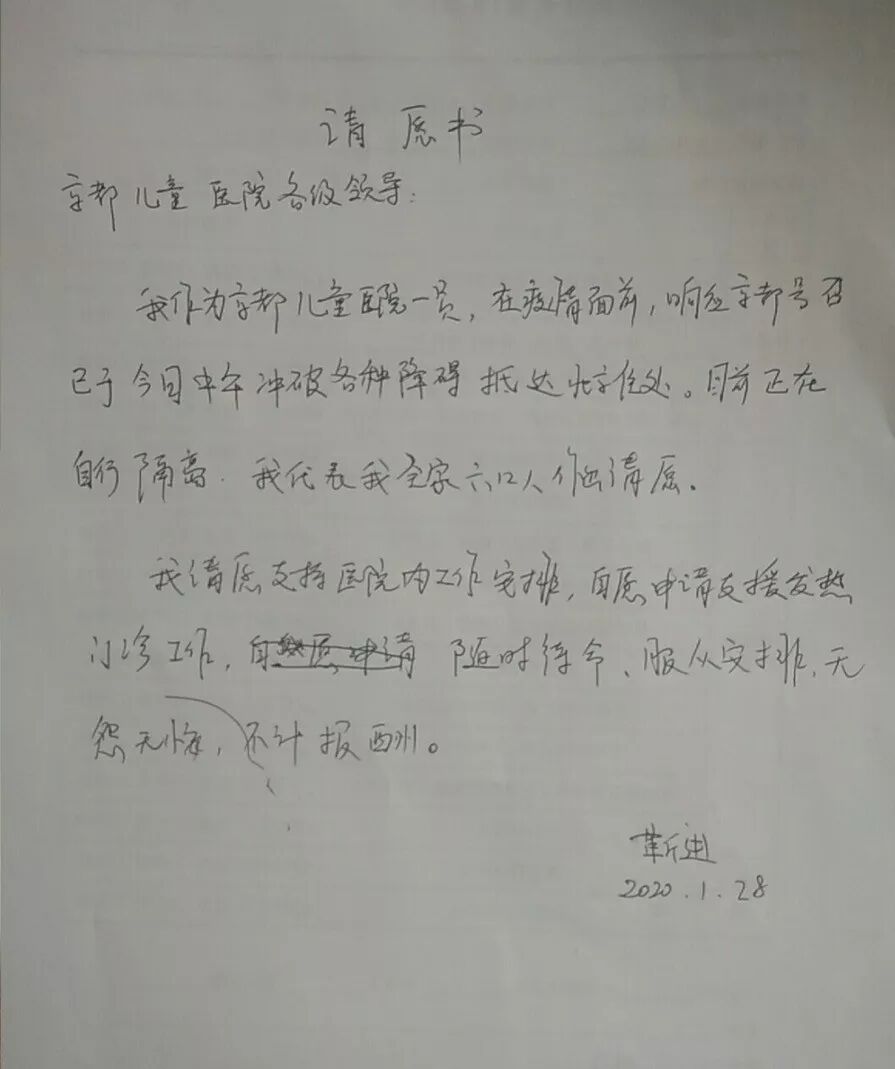 请愿书
京都儿童医院各级领导:
我作为京都儿童医院一员,在疫情面前,响应京都号召
已于今日中午冲破各种障碍抵达北京住处。目前正在
自行隔离.我代表我全家六口人作出请愿.
我请愿支持医院内工作安排,自愿申请支援发热
门诊工作,自愿申请 随时待命、服从安排,无
怨无悔,不计报酬。
靳进
2020.1.28